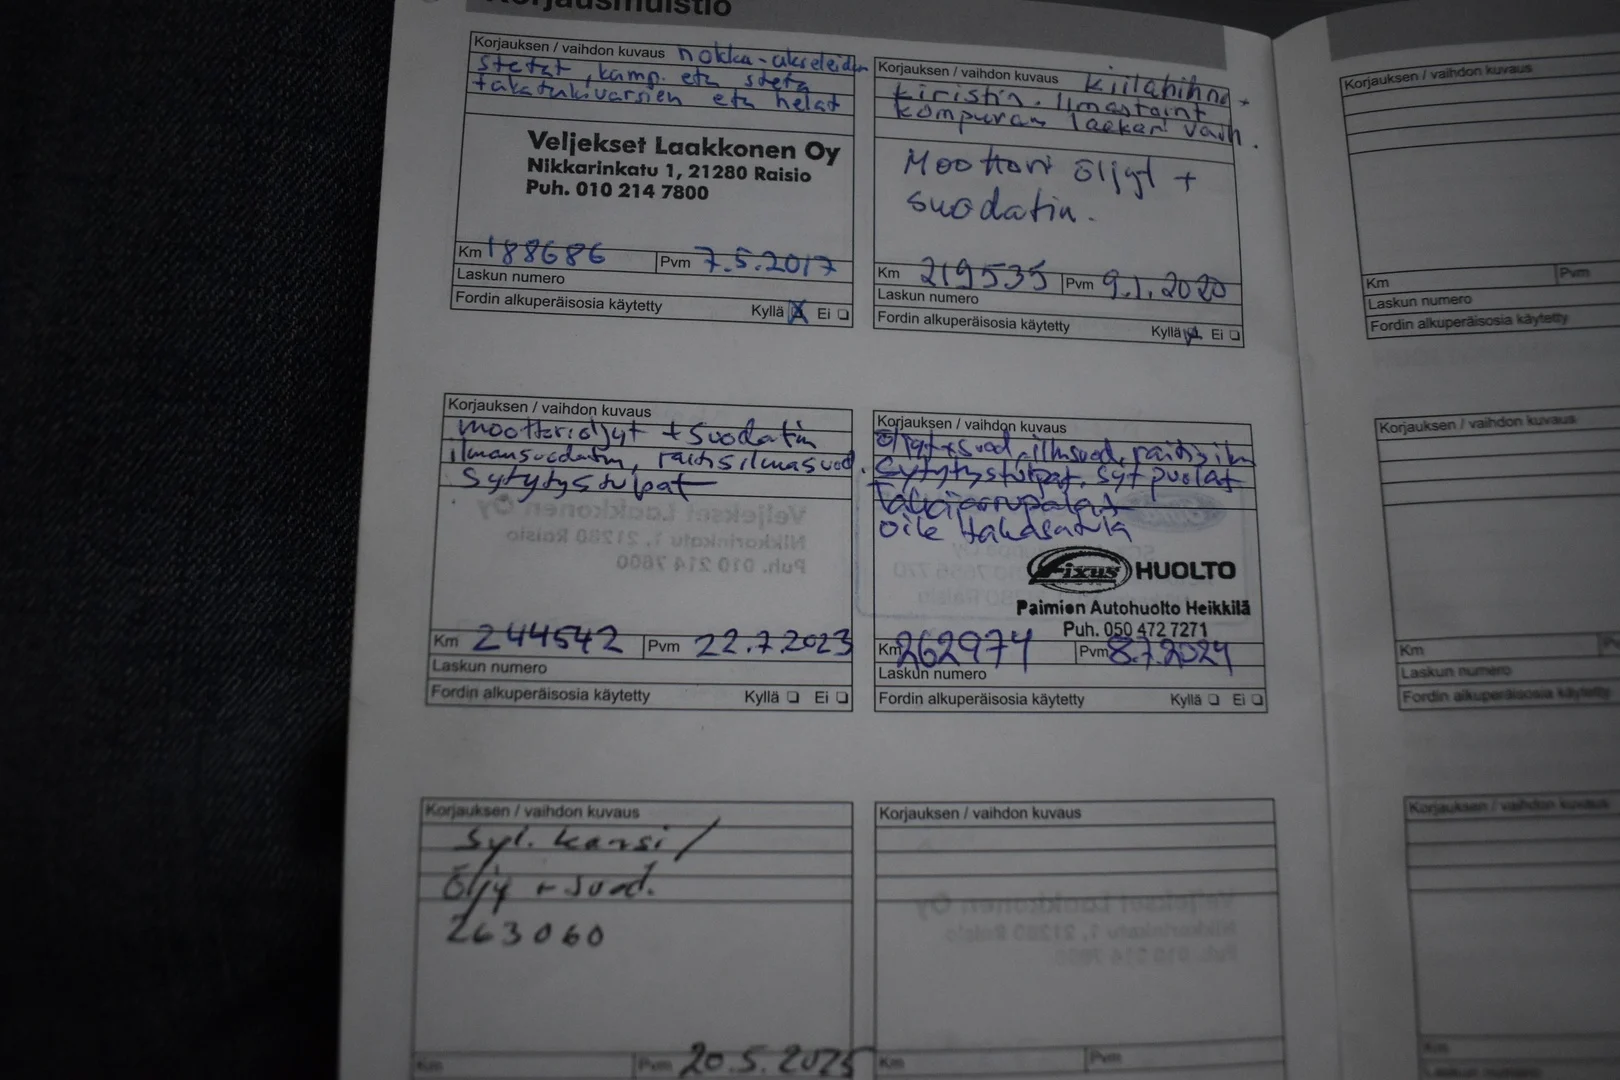 Korjausmuistio
Korjauksen / vaihdon kuvaus nokka-akseleiden
stefat, kamp. etu stefa
takatukivarsien etu helat
Veljekset Laakkonen Oy
Nikkarinkatu 1, 21280 Raisio
Puh. 010 214 7800
Km 188686 Pvm 7.5.2017
Laskun numero
Fordin alkuperäisosia käytetty Kyllä Ei
Korjauksen / vaihdon kuvaus kiilahihna
kiristin. Ilmastoint
kompuran laaker vaih.
Moottori öljyt +
suodatin.
Km 219535 Pvm 9.1.2020
Laskun numero
Fordin alkuperäisosia käytetty Kyllä Ei
Korjauksen / vaihdon kuvaus
moottoriöljyt + suodatin
ilmansuodatin, raitisilmasuod.
Sytytystulpat
Km 244542 Pvm 22.7.2023
Laskun numero
Fordin alkuperäisosia käytetty Kyllä Ei
Korjauksen / vaihdon kuvaus
öljyt+suod, ilmsuod, raitisilm
Sytytystulpat, syt puolat
Takajarrupalat
oike takasatula
Fixus HUOLTO
Paimion Autohuolto Heikkilä
Puh. 050 472 7271
Km 262974 Pvm 8.7.2024
Laskun numero
Fordin alkuperäisosia käytetty Kyllä Ei
Korjauksen / vaihdon kuvaus
Syl. kansi /
Öljy + suod.
263060
Km Pvm 20.5.2025
Korjauksen / vaihdon kuvaus
Km Pvm
Korjauksen / vaihdon kuvaus
Km Pvm
Laskun numero
Fordin alkuperäisosia käytetty
Korjauksen / vaihdon kuvaus
Km
Laskun numero
Fordin alkuperäisosia käytetty
Korjauksen / vaihdon kuvaus
Km
Laskun numero